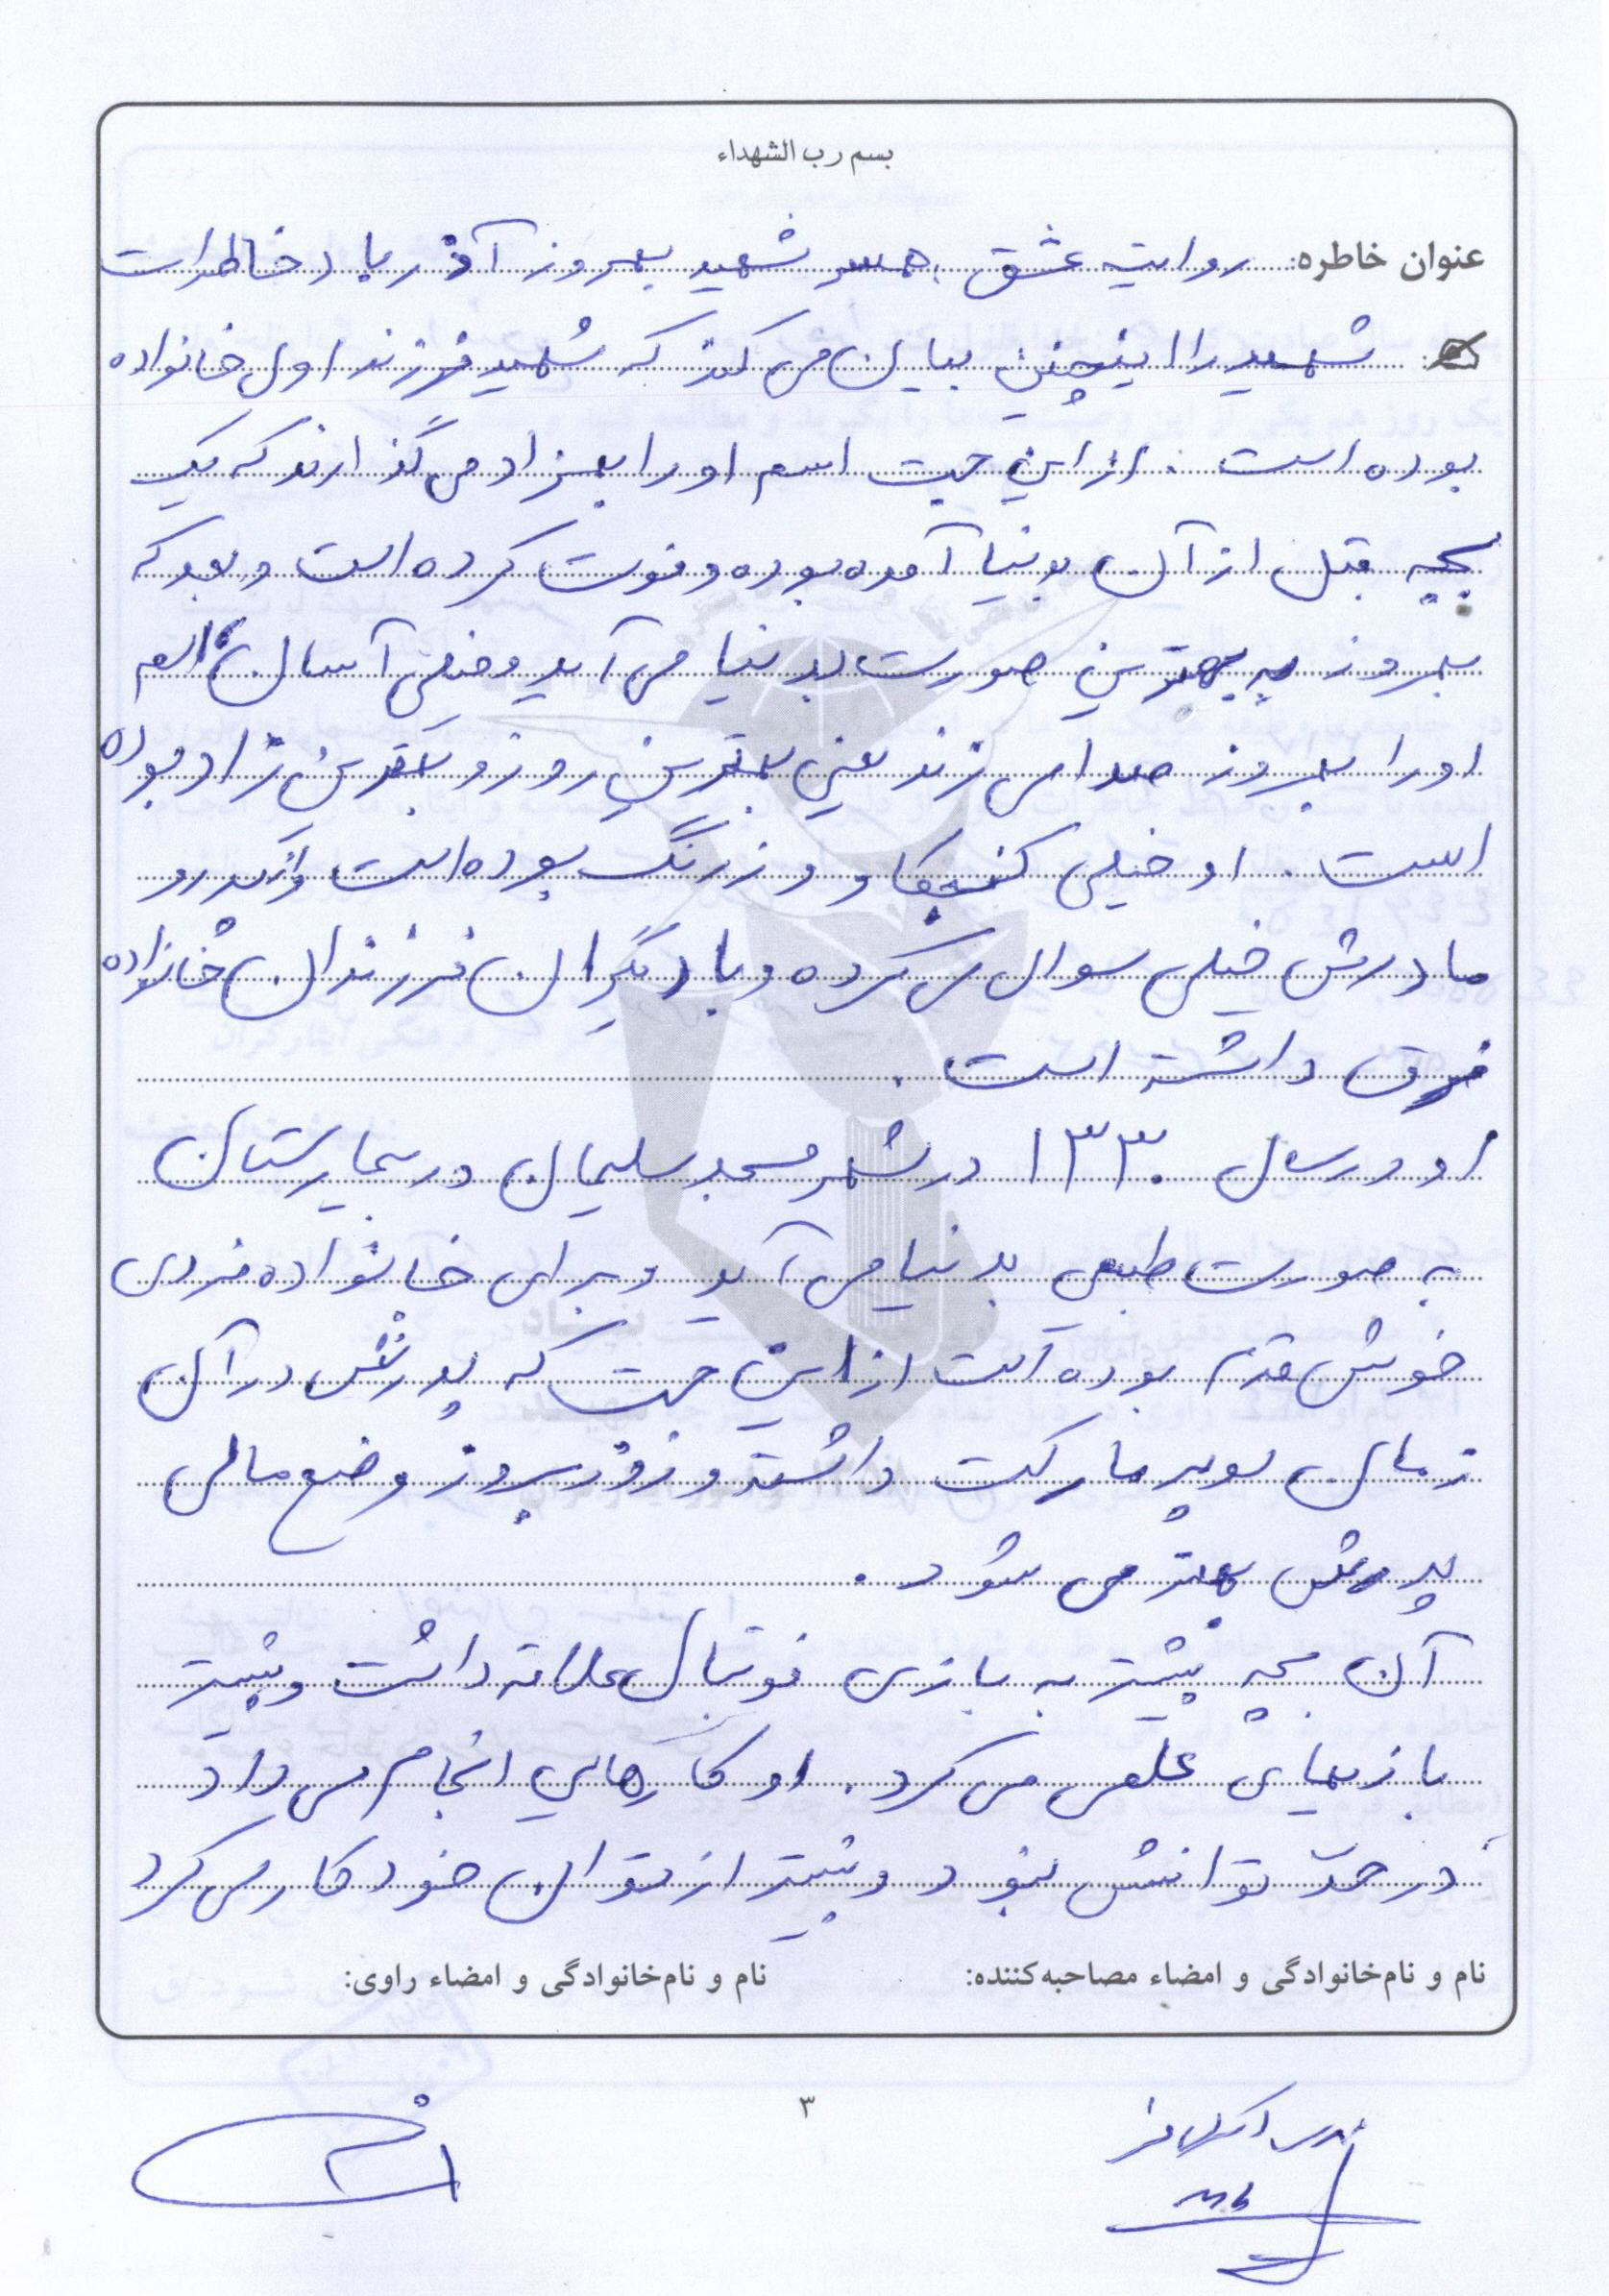 بسم رب الشهداء
عنوان خاطره: روایت عشق، همسر شهید بهروز آذرباد خاطرات
شهید را اینچنین بیان می کند که شهید فرزند اول خانواده
بوده است. از این جهت اسم او را بهزاد می گذارند که یک
بچه قبل از آن بدنیا آمده بوده و فوت کرده است و بعد که
بهروز به بهترین صورت بدنیا می آید و خیلی آسان، اسم
او را بهروز صدا می زند یعنی بهترین روز و بهترین نژاد بوده
است. او خیلی کنجکاو و زرنگ بوده است و از پدر و
مادرش خیلی سوال می کرده و با دیگران فرزندان خانواده
فرق داشته است.
او در سال ۱۳۳۰ در شهر مسجد سلیمان در بیمارستان
به صورت طبیعی بدنیا می آید و برای خانواده فردی
خوش قدم بوده است از این جهت که پدرش در آن
زمان سوپر مارکت داشته و روز بروز وضع مالی
پدرش بهتر می شود.
آن بچه بیشتر به بازی فوتبال علاقه داشت و بیشتر
بازیهای علمی می کرد. او کارهایی انجام می داد
در حدّ توانش نبود و بیشتر از توان خود کار می کرد
نام و نام‌خانوادگی و امضاء مصاحبه‌کننده: نام و نام‌خانوادگی و امضاء راوی:
۳